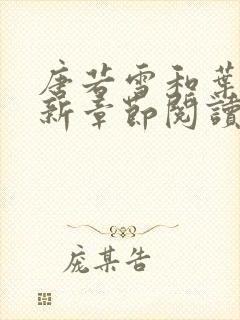 唐若雪和葉
新章節閱讀
庞某告